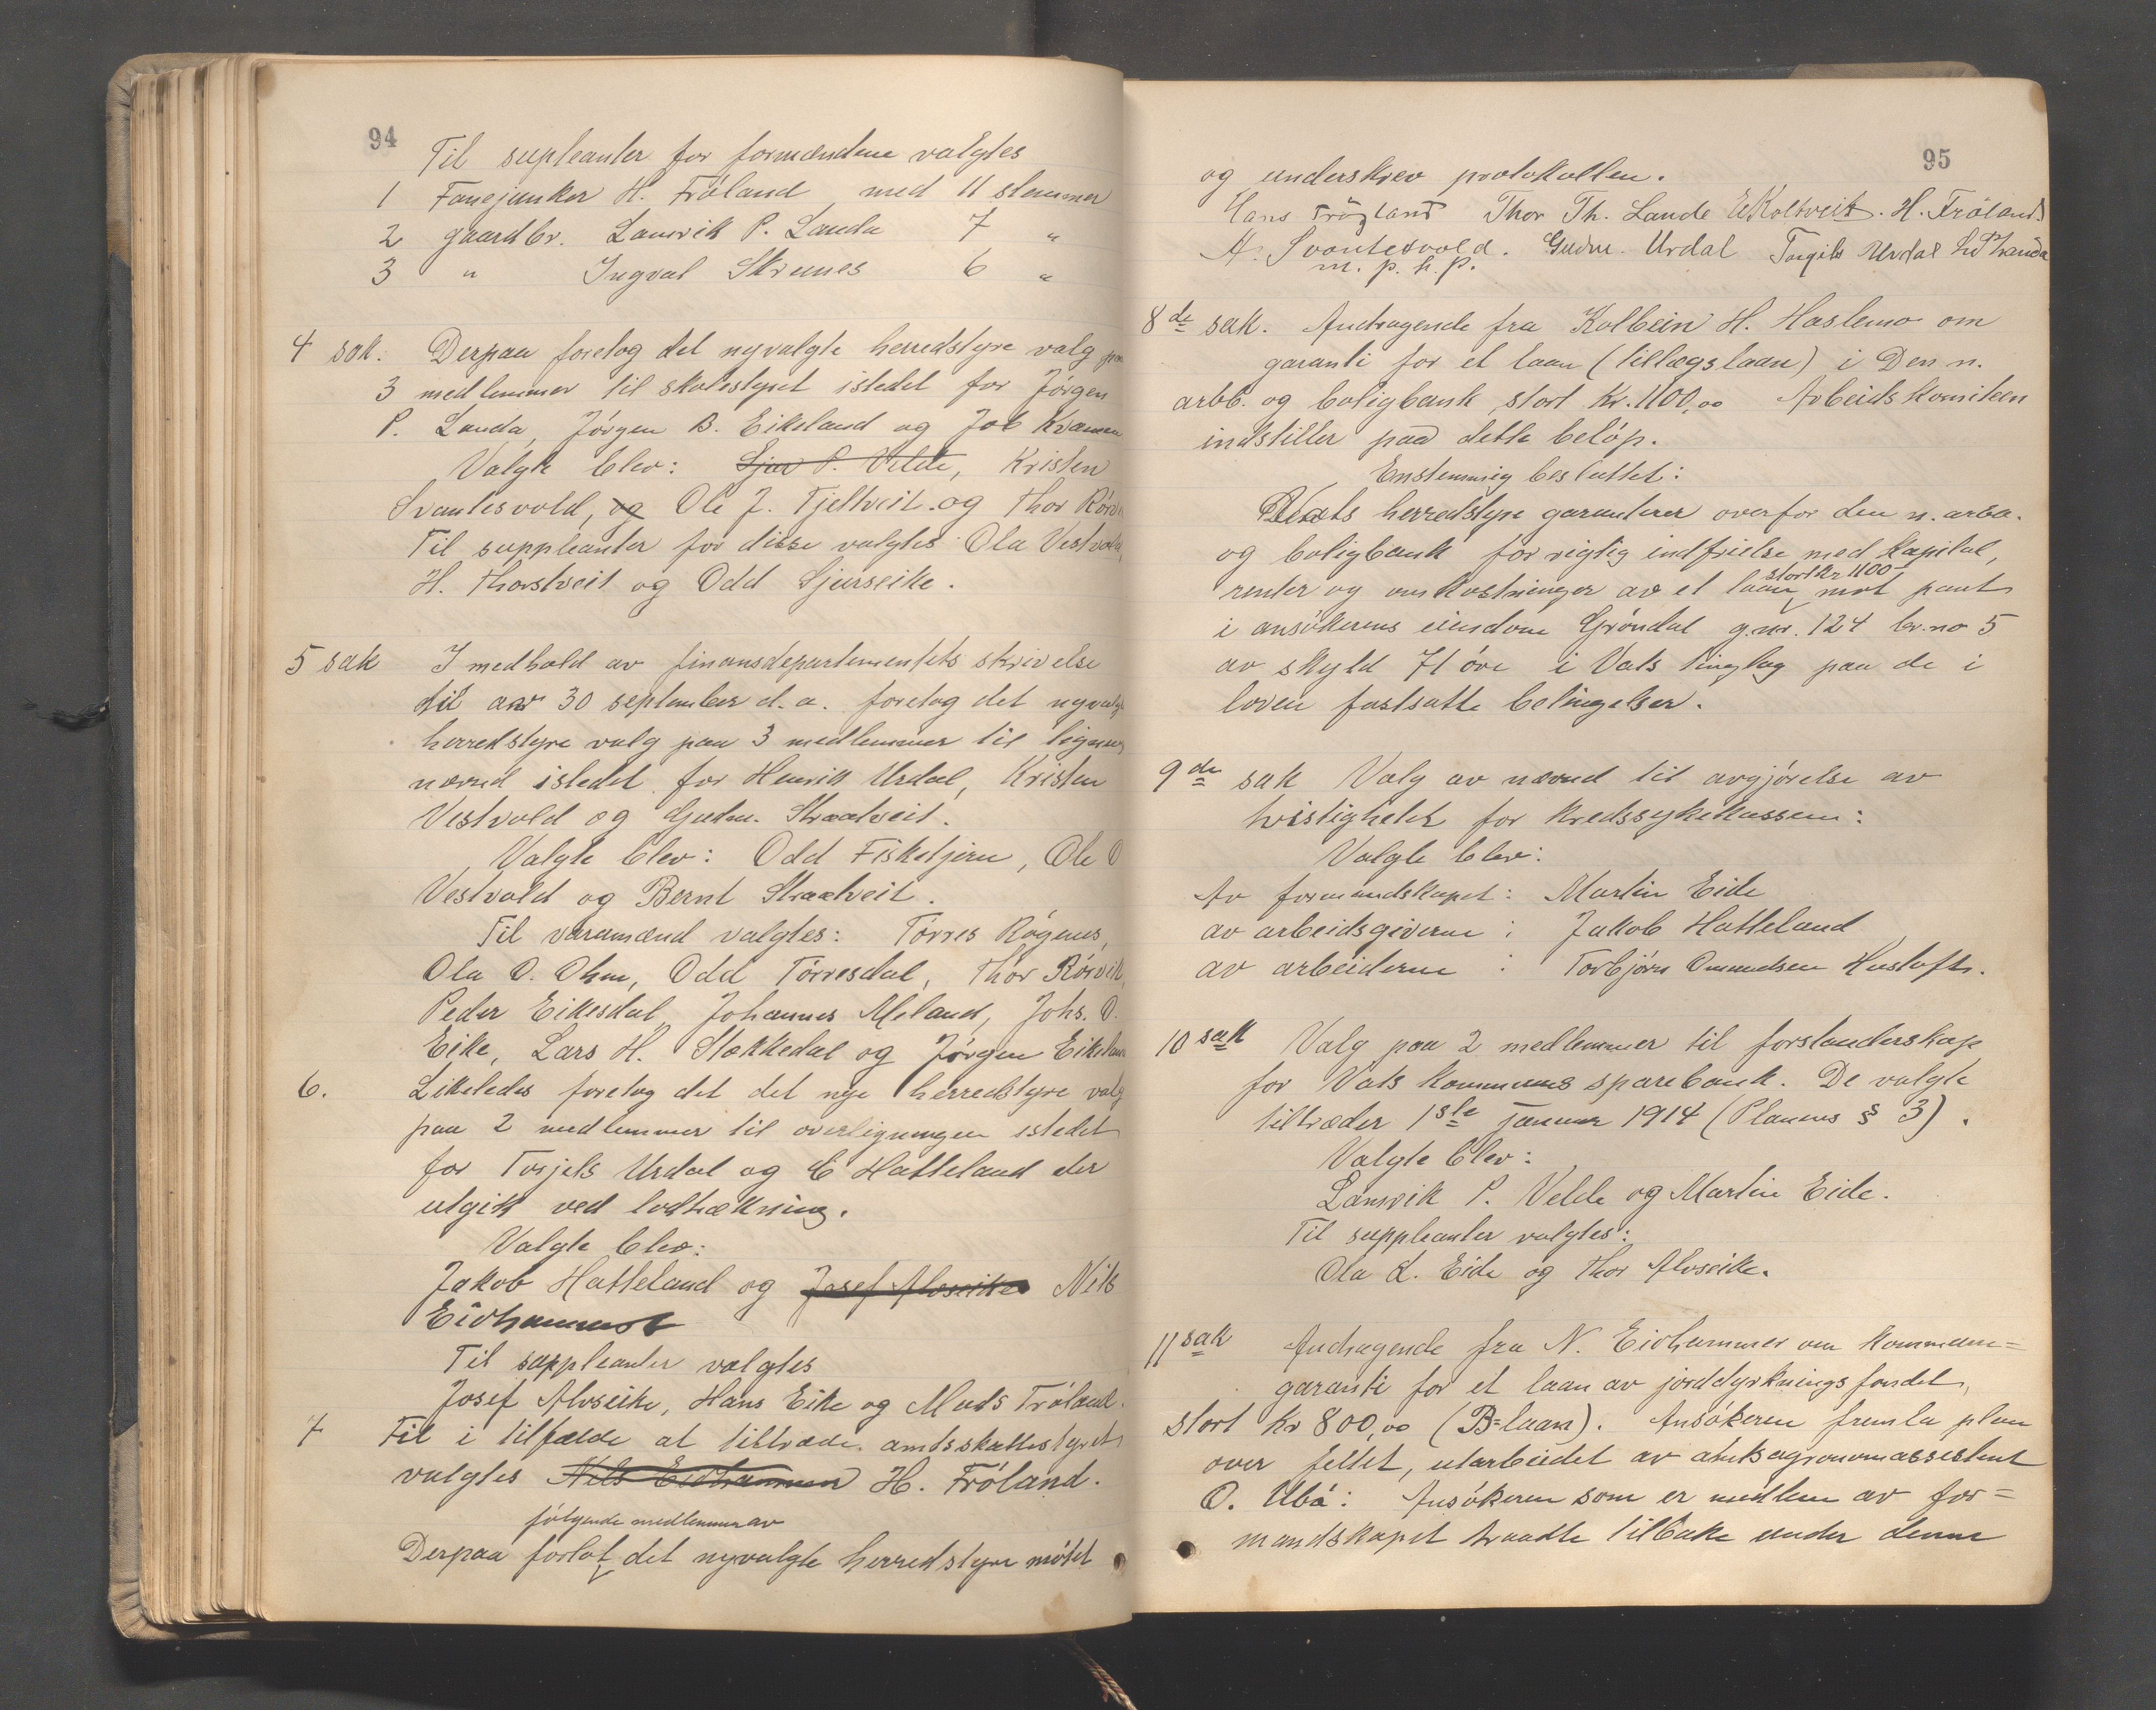 94
Til supleanter for formændene valgtes
1 Fanejunker H. Fröland med 11 stemmer
2 gaardbr. Lauvik P. Landa 7 "
3 " Ingval Skrunes 6 "
4 sak. Derpaa foretog det nyvalgte herredstyre valg paa
3 medlemmer til skolestyret istedet for Jörgen
P. Landa, Jörgen B. Eikeland og Job Kvamen
Valgte blev: Sjur P. Velde, Kristen
Svantesvold, og Ole J. Fjeltveit og Thor Rörvik
Til suppleanter for disse valgtes Ola Vestvold,
H. Thorstveit og Odd Sjurseike.
5 sak I medhold av finansdepartementets skrivelse
til av 30 september d. a. foretog det nyvalgte
herredstyre valg paa 3 medlemmer til lignings
nævnd istedet for Henrik Urdal, Kristen
Vestvold og Gudm. Straatveit.
Valgte blev: Odd Fisketjern, Ole O
Vestvold og Bernt Straatveit.
Til varamænd valgtes: Törres Rögenes,
Ola O. Ohm, Odd Törresdal, Thor Rörvik,
Peder Eikesdal, Johannes Meland, Johs. O.
Eike, Lars H. Stokkedal og Jörgen Eikeland
6. Likeledes foretog det det nye herredstyre valg
paa 2 medlemmer til overligningen istedet
for Torjels Urdal og E Hatteland der
utgik ved lodtrækning.
Valgte blev:
Jakob Hatteland og Josef Alvseike Nils
Eidhammer
Til suppleanter valgtes
Josef Alvseike, Hans Eike og Mads Fröland.
7 Til i tilfælde at tiltræde amtsskattestyret
valgtes Nils Eidhammer H. Fröland.
følgende medlemmer av
Derpaa forlot det nyvalgte herredstyre mötet
95
og underskrev protokollen.
Hans Fröyland Thor Th. Lande E Koltveit. H. Fröland
A. Svantesvold. Gudm. Urdal Torgils Urdal L P Landa
m. p. h. p.
8de sak. Andragende fra Kolbein H. Haslemo om
garanti for et laan (tillægslaan) i Den n.
arbb. og boligbank, stort Kr. 1100,00 Arbeidskomiteen
indstiller paa dette belöp.
Enstemmig besluttet:
Vats herredstyre garanterer overfor den n. arbb.
og boligbank for rigtig indfrielse med kapital,
stort kr 1100
renter og omkostninger av et laan mot pant
i ansökerens eiendom Gröndal g.nr. 124 br.no 5
av skyld 71 öre i Vats tinglag paa de i
loven fastsatte betingelser.
9de sak Valg av nævnd til avgjörelse av
tvistigheter for kredssykekassen:
Valgte blev:
Av formandskapet: Martin Eide
av arbeidsgiverne : Jakob Hatteland
av arbeiderne : Torbjörn Omundsen Hustoft.
10 sak Valg paa 2 medlemmer til forstanderskap
for Vats kommunes sparebank. De valgte
tiltræder 1ste januar 1914 (Planens § 3).
Valgte blev:
Lauvik P. Velde og Martin Eide.
Til suppleanter valgtes:
Ola L. Eide og Thor Alvseike.
11 sak Andragende fra N. Eidhammer om kommune=
garanti for et laan av jorddyrkningsfondet,
stort kr 800,00 (B=laan). Ansökeren fremla plan
over feltet, utarbeidet av amtsagronomassistent
O. Ubö: Ansökeren som er medlem av for=
mandskapet traadte tilbake under denne